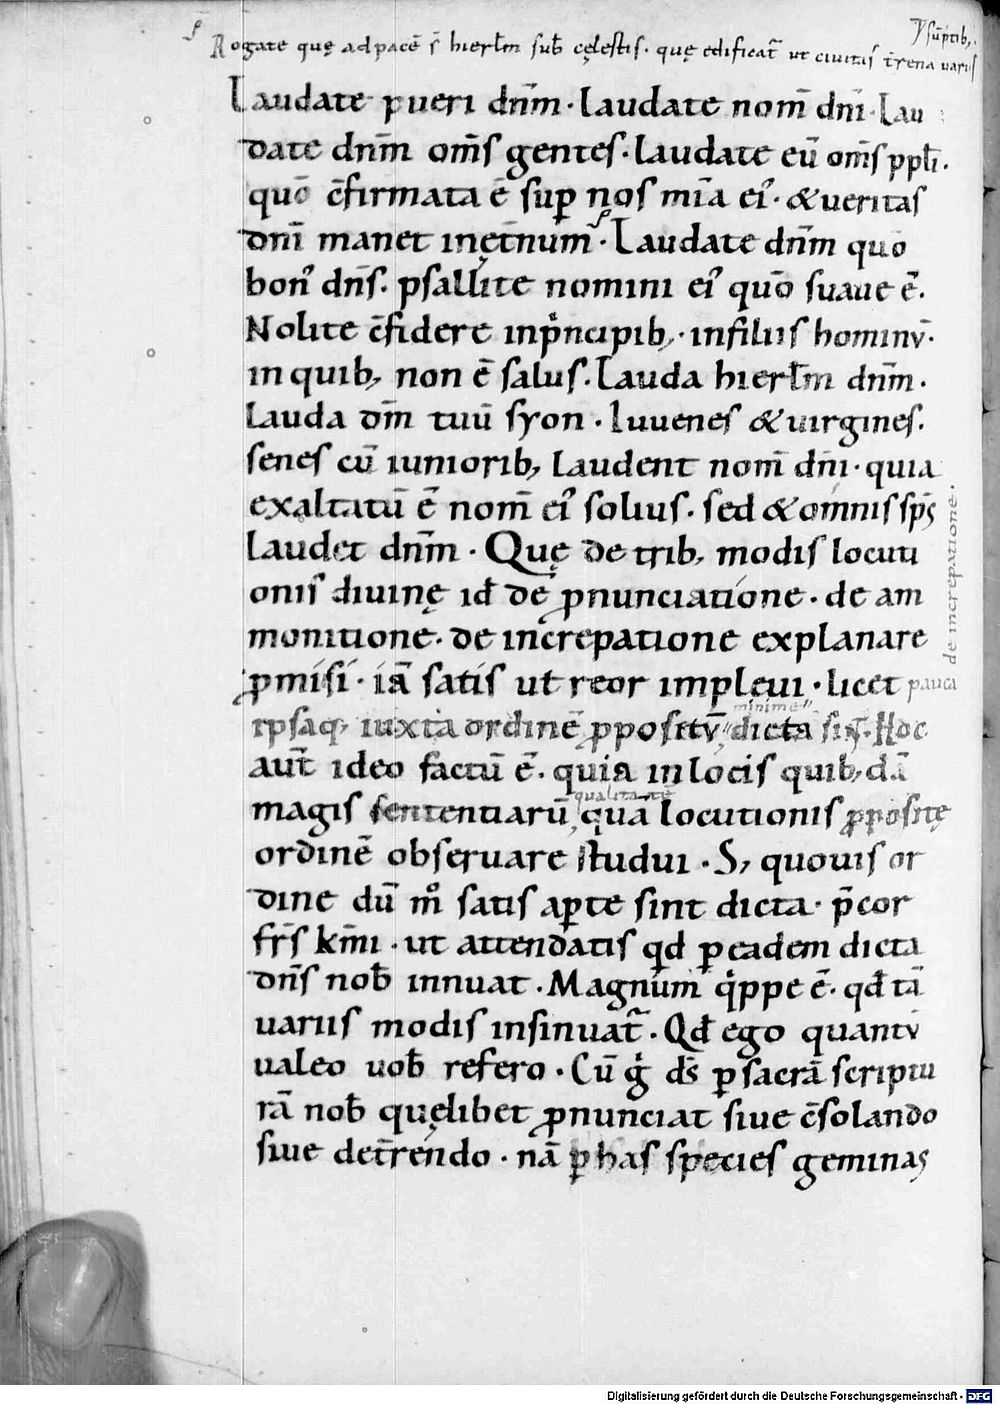 Rogate quę ad pacē s̄ hierłm sub̄ cęlestis. quę edificat̄ ut ciuitas t̄rena variis
sūptib;.
Laudate pueri dn̄m. Laudate nom̄ dn̄i. Lau
date dn̄m om̄s gentes. Laudate eū om̄s ppłi.
quō c̄firmata ē sup nos mīa ei'. & ueritas
dn̄i manet inęt̄num. Laudate dn̄m quō
bon' dn̄s. psallite nomini ei' quō suaue ē.
Nolite c̄fidere inp'ncipib;. infiliis hominū.
in quib; non ē salus. Lauda hierłm dn̄m.
Lauda dm̄ tuū syon. Iuuenes & uirgines.
senes cū iuniorib; laudent nom̄ dn̄i. quia
exaltatū ē nom̄ ei' solius. sed & omnis sp̄s
laudet dn̄m. Quę de trib; modis locuti
onis diuinę id ē de ꝓnunciatione. de am
monitione. de increpatione explanare
de increpatione.
ꝓmisi. iā satis ut reor impleui. licet pauca
ipsaq; iuxta ordinē ꝓpositū dicta sint. Hoc
minime
aut̄ ideo factū ē. quia in locis quib; dā
magis sententiarū quā locutionis ꝓpositę
qualitatē
ordinē obseruare studui. S; quouis or
dine dū m° satis aꝑte sint dicta. p̄cor
fr̄s km̄i. ut attendatis qd̄ ꝑ eadem dicta
dn̄s nob̄ innuat. Magnum q'ppe ē. qd̄ tā
uariis modis insinuat̄. Qd̄ ego quantū
ualeo uob̄ refero. Cū g' ds̄ ꝑ sacrā scriptu
rā nob̄ quęlibet ꝓnunciat siue c̄solando
siue det̄rendo. nā ꝑ has species geminas
Digitalisierung gefördert durch die Deutsche Forschungsgemeinschaft - DFG